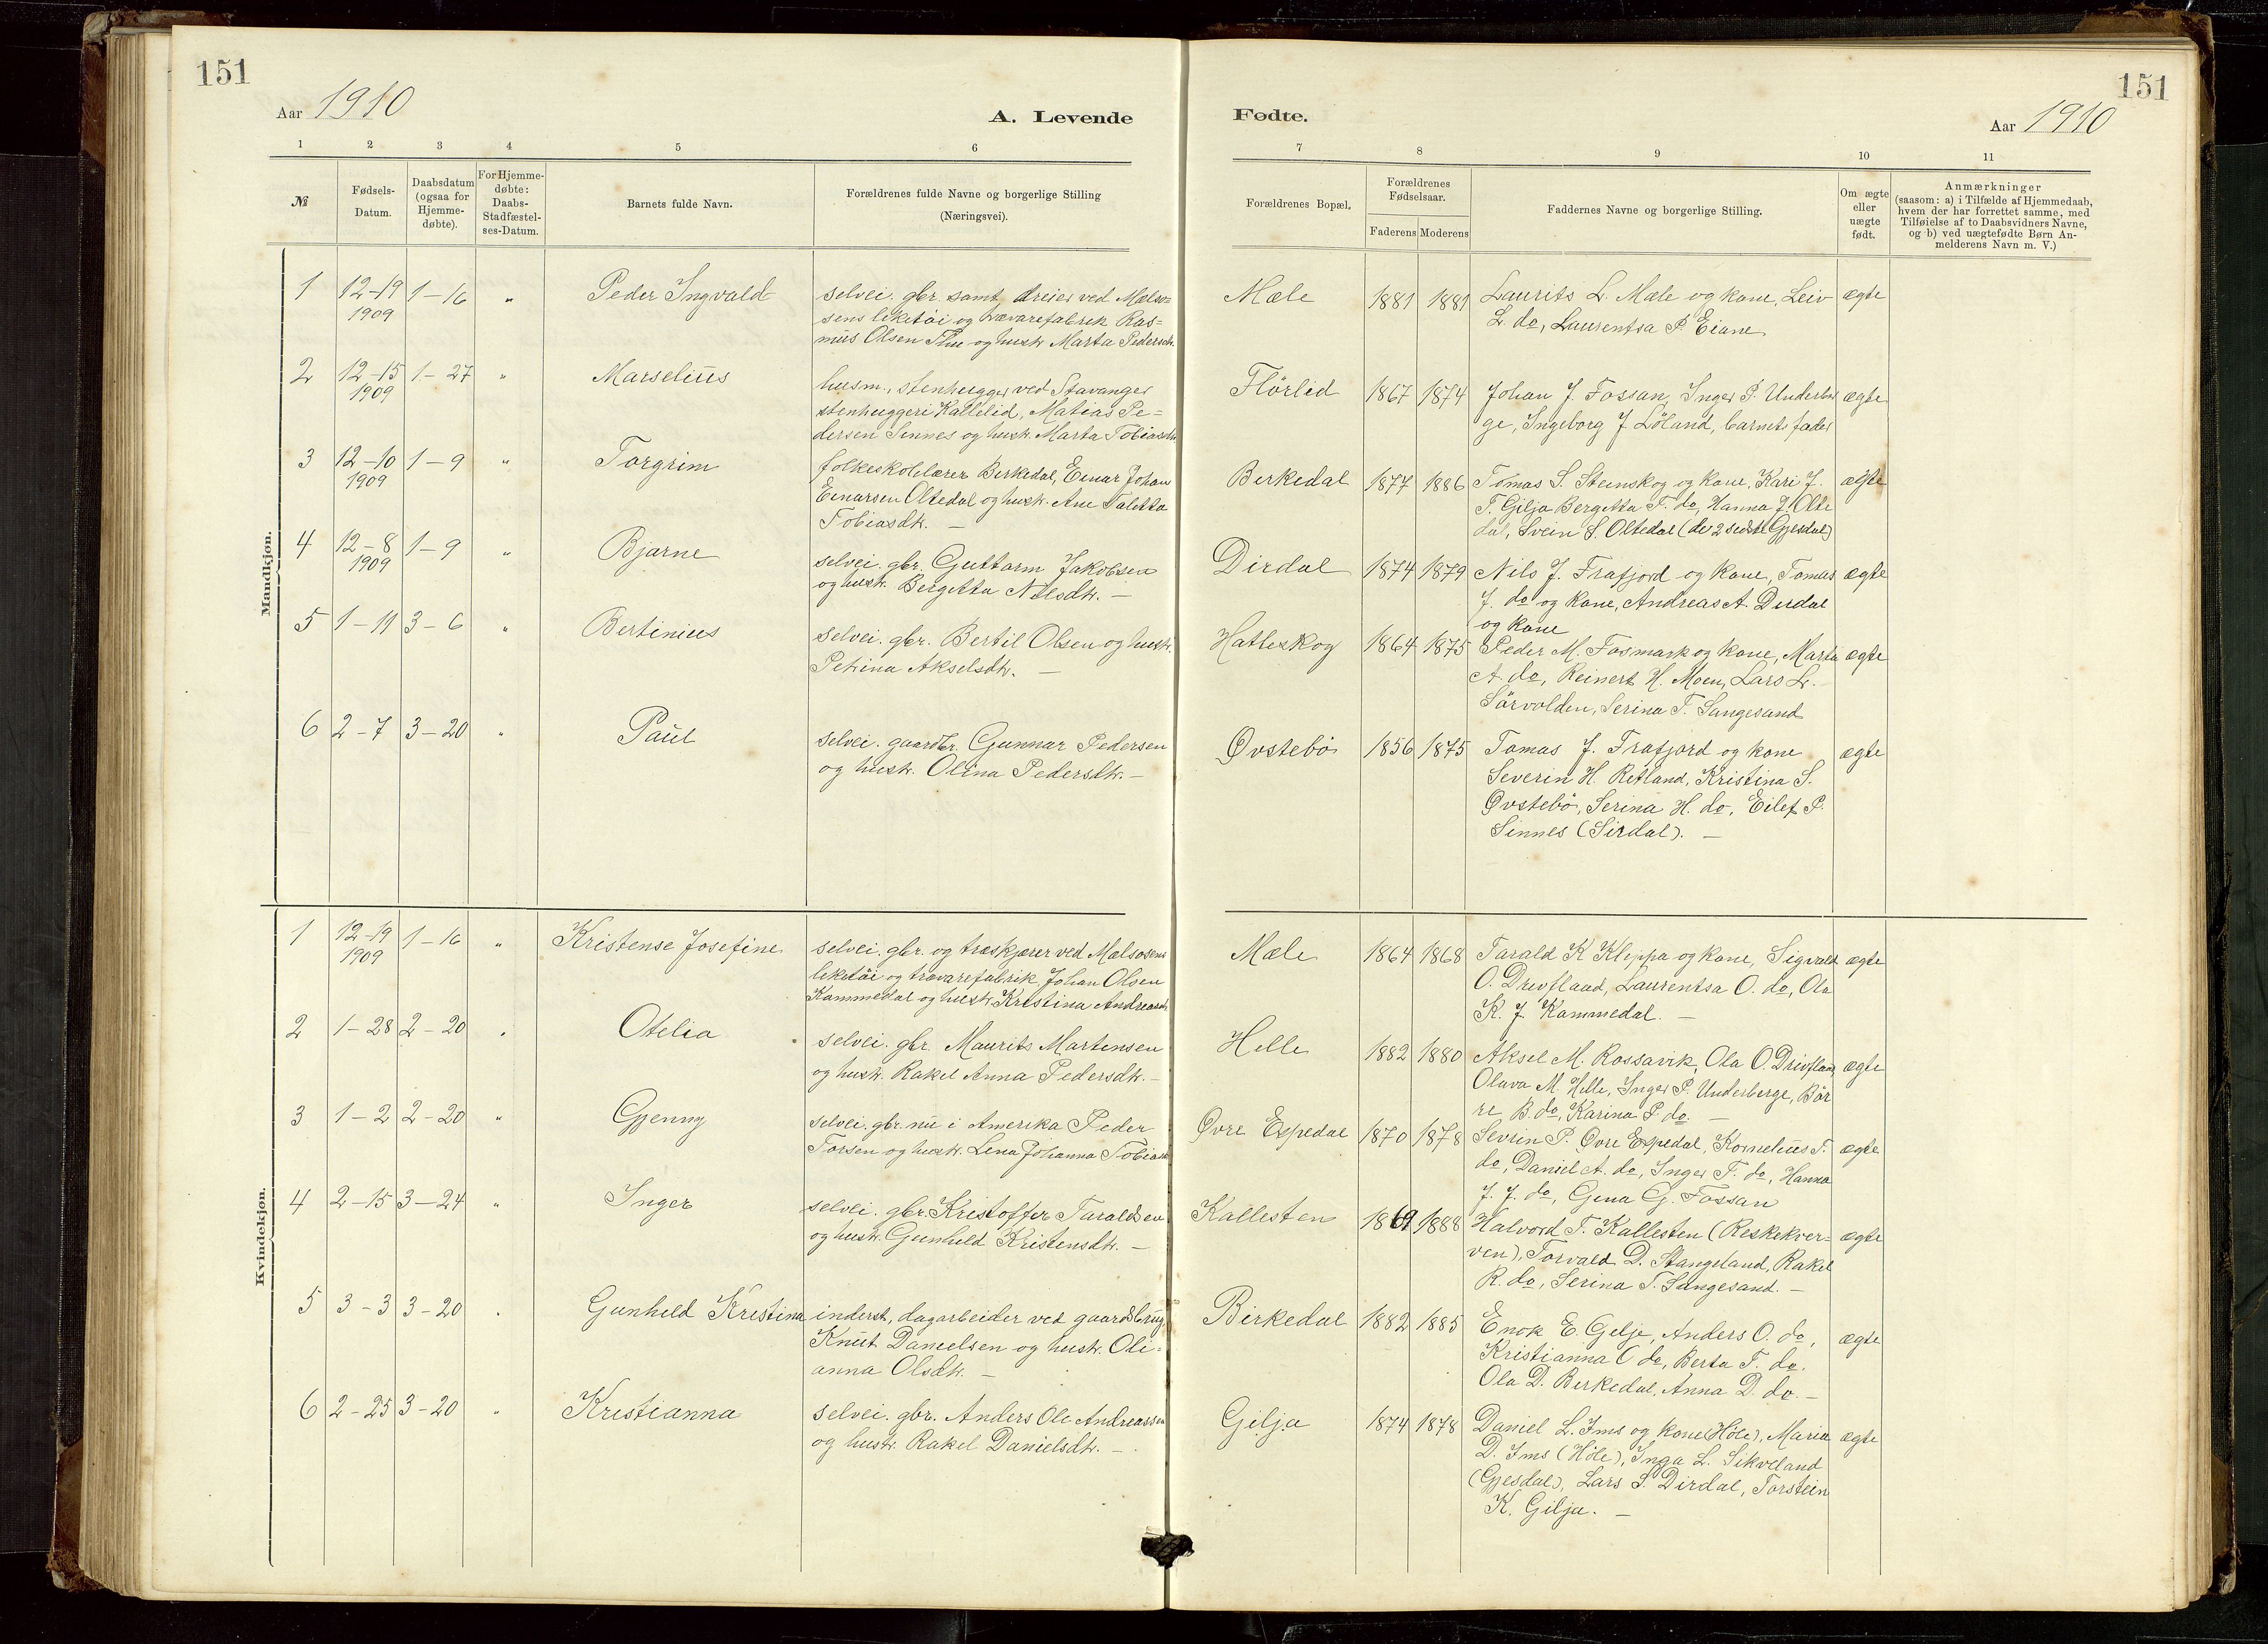 151
Aar 1910
A. Levende
1 2 3 4 5 6
№
Fødsels-
Datum.
Daabsdatum
(ogsaa for
Hjemme-
døbte).
For Hjemme-
døbte:
Daabs-
Stadfæstel-
ses-Datum.
Barnets fulde Navn.
Forældrenes fulde Navne og borgerlige Stilling
(Næringsvei).
Mandkjøn.
1 12-19 1-16 " Peder Ingvald selvei. gbr. samt dreier ved Mælso-
1909 sens leketöi og trævarefabrik Ras=
mus Olsen Thu og hustr. Marta Pedersdtr.
2 12-15 1-27 " Marselius husm., stenhugger ved Stavanger
1909 stenhuggeri Kallelid, Matias Pe=
dersen Sinnes og hustr. Marta Tobiasdtr.
3 12-10 1-9 " Torgrim folkeskolelærer Birkedal, Einar Johan
1909 Einarsen Oltedal og hustr. Ane Taletta
Tobiasdtr. —
4 12-8 1-9 " Bjarne selvei. gbr. Guttorm Jakobsen
1909 og hustr. Bergitta Nilsdtr. —
5 1-11 3-6 " Bertinius selvei. gbr. Bertil Olsen og hustr.
Petrina Akselsdtr. —
6 2-7 3-20 " Paul selvei. gaardbr. Gunnar Pedersen
og hustr. Olina Pedersdtr. —
Kvindekjøn.
1 12-19 1-16 " Kristense Josefine selvei. gbr. og træskjærer ved Mælsosens
1909 leketöi og trævarefabrik Johan Olsen
Kommedal og hustr. Kristina Andreasdtr.
2 1-28 2-20 " Otelia selvei. gbr. Maurits Martensen
og hustr. Rakel Anna Pedersdtr. —
3 1-2 2-20 " Gjenny selvei. gbr. nu i Amerika Peder
Torsen og hustr. Lena Johanna Tobiasdtr.
4 2-15 3-24 " Inger selvei. gbr. Kristoffer Taraldsen
og hustr. Gunhild Kristensdtr. —
5 3-3 3-20 " Gunhild Kristina inderst, dagarbeider ved gaardsbrug,
Knut Danielsen og hustr. Oli=
anna Olsdtr. —
6 2-25 3-20 " Kristianna selvei. gbr. Anders Ole Andreassen
og hustr. Rakel Danielsdtr. —
151
Fødte.
Aar 1910
7 8 9 10 11
Forældrenes Bopæl.
Forældrenes
Fødselsaar.
Faderens Moderens
Faddernes Navne og borgerlige Stilling.
Om ægte
eller
uægte
født.
Anmærkninger
(saasom: a) i Tilfælde af Hjemmedaab,
hvem der har forrettet samme, med
Tilføielse af to Daabsvidners Navne,
og b) ved uægtefødte Børn An-
melderens Navn m. V.)
Mæle 1881 1881 Laurits L. Mæle og kone, Leiv ægte
L. do, Laurentsa P. Eiane
Flörlid 1867 1874 Johan J. Fossan, Inger P. Underber ægte
ge, Ingeborg J. Löland, barnets fader
Birkedal 1877 1886 Tomas S. Stenskog og kone, Kari J. ægte
T. Gilja Bergitta T. do, Hanna J. Olte
dal, Svein S. Oltedal (de 2 sidste Gjesdal)
Dirdal 1874 1879 Nils J. Frafjord og kone, Tomas ægte
J. do og kone, Andreas A. Dirdal
og kone
Hatleskog 1864 1875 Peder M. Fosmark og kone, Marta ægte
A. do, Reinert H. Moen, Lars L.
Sörvolden, Serina T. Sangesand
Øvstebö 1856 1875 Tomas J. Frafjord og kone ægte
Severin H. Retland, Kristina S.
Øvstebö, Serina H. do, Eilef P.
Sinnes (Sirdal). —
Mæle 1864 1868 Tarald K Kleppa og kone, Sigvald ægte
O. Drivfland, Laurentsa O. do, Ola
K. J. Kommedal. —
Helle 1882 1880 Aksel M. Rossavik, Ola O. Drivfland ægte
Olava M. Helle, Inger P. Underberge, Bör
re B. do, Karina P. do —
Øvre Espedal 1870 1878 Sevrin P. Øvre Espedal, Kornelius T. ægte
do, Daniel A. do, Inger T. do, Hanna
J. J. do, Gina G. Fossan
Kallesten 1869 1888 Halvord T. Kallesten (Reskekver= ægte
ven), Torvald D. Stangeland, Rakel
R. do, Serina T. Sangesand. —
Birkedal 1882 1885 Enok E. Gilje, Anders O. do, ægte
Kristianna O do, Berta T. do.
Ola D. Birkedal, Anna D. do. —
Gilja 1874 1878 Daniel L. Ims og kone (Höle), Maria ægte
D. Ims (Höle), Inga L. Sikveland
(Gjesdal), Lars S. Dirdal, Torstein
K. Gilja. —